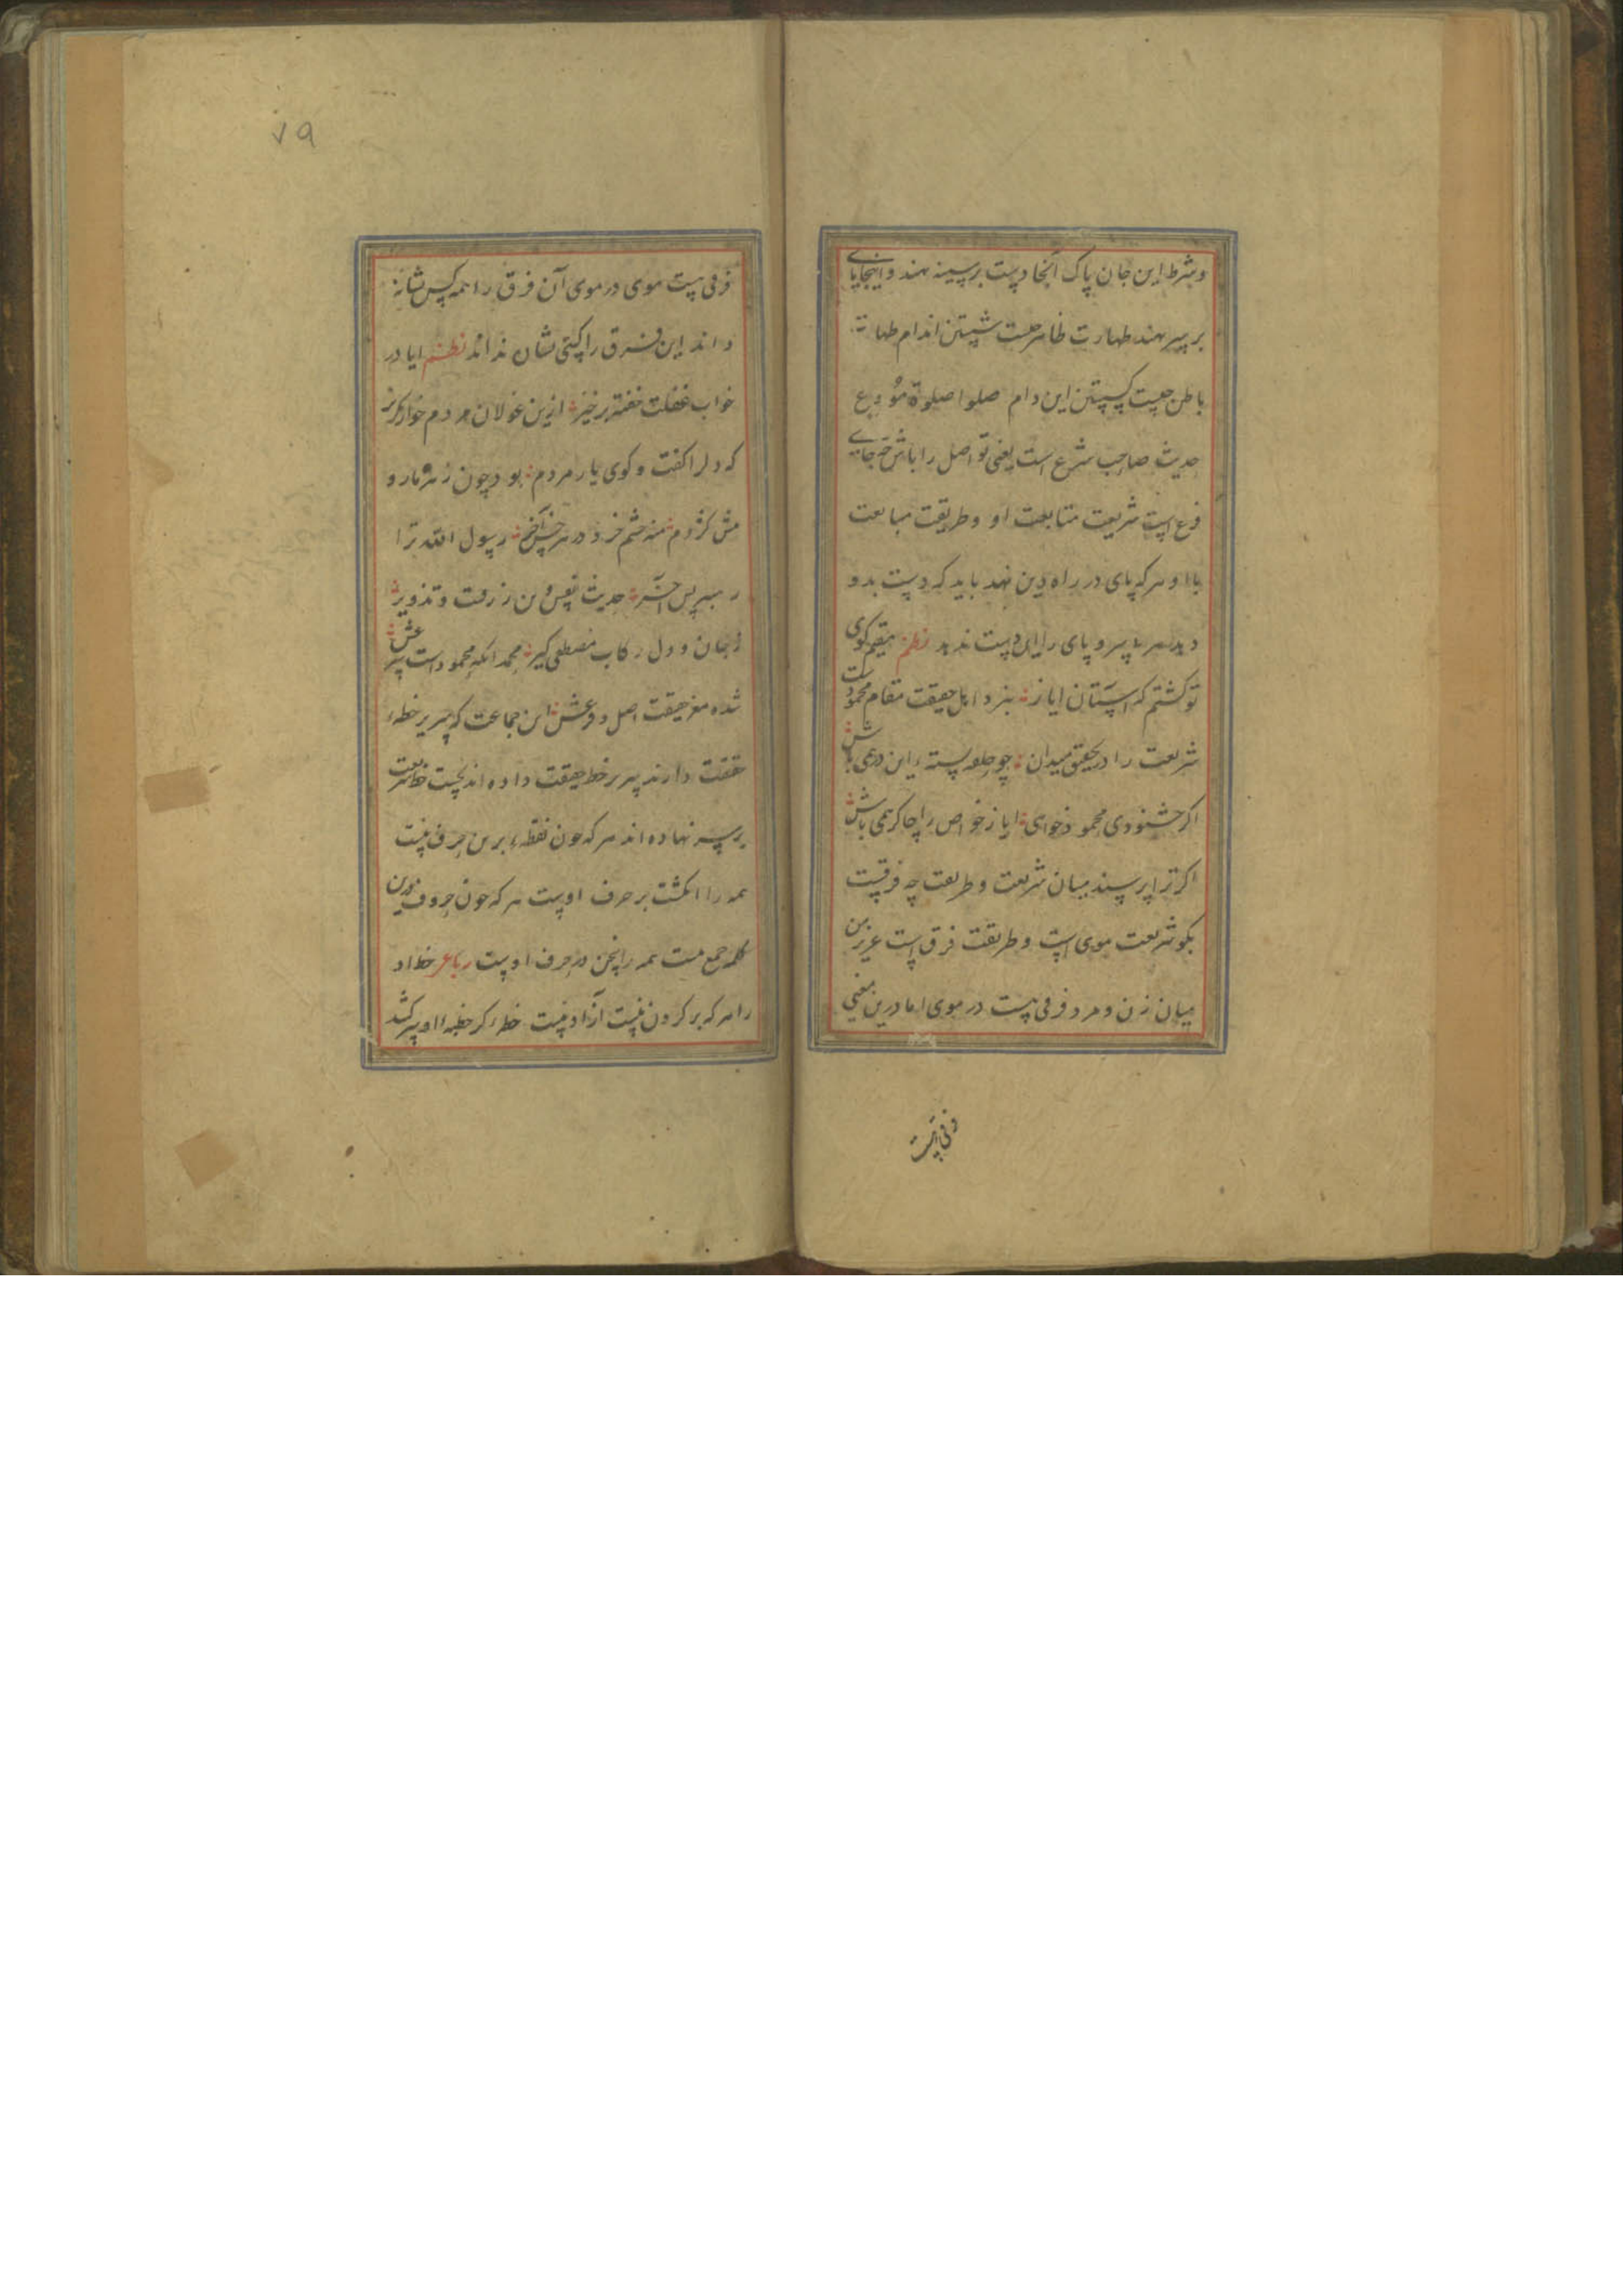 وشرط این جان پاک آنجا دست بر سینه نهند و اینجا پای
بر سر نهند طهارت ظاهر چیست شستن اندام طهارت
باطن چیست کسستن این دام صلوا صلوة مودع
حدیث صاحب شرع است یعنی تو اصل را باش چه جای
فرع است شریعت متابعت او و طریقت مبایعت
با او هر که پای در راه دین نهد باید که دست بدو
دهد هر بی سر و پای را این دست ندهد نظم مقیم کوی
تو کشتم که آستان ایاز بنزد اهل حقیقت مقام محمودست
شریعت را در تحقیق میدان چو حلقه بسته این در همی باش
اکر خشنودی محمود خواهی ایاز خواص را چاکر همی باش
اکر ترا پرسند میان شریعت و طریقت چه فرقست
بکو شریعت موی است و طریقت فرق است عزیز من
میان زن و مرد فرقی هست در موی اما درین معنی
فرقی هست
٧٩
فرقی هست موی در موی آن فرق را همه کس شانه
داند این فرق را کسی نشان نداند نظم ایا در
خواب غفلت خفته برخیز ازین غولان مردم خوار بکریز
که دلرا کفت و کوی یار مردم بود چون زهر مار و
نیش کژدم منه چشم خرد در هر خس آخر رسول الله ترا
رهبر بس آخر حدیث نفس دون زرقست و تزویر
زجان و دل رکاب مصطفی کیر محمد آنکه محمودست سر عش
شده مغز حقیقت اصل و فرعش این جماعت که سر بر خطه
حقیقت دارند سر بر خط حقیقت داده اند نخست خط شریعت
بر سر نهاده اند هر که چون نقطه برین حرف نیست
همه را انکشت بر حرف اوست هر که چون حروف درین
کلمه جمع نیست همه را سخن در حرف اوست رباعی خط او
را هر که بر کردن نیست آزاد نیست خطه کر خطبه او سر کشد